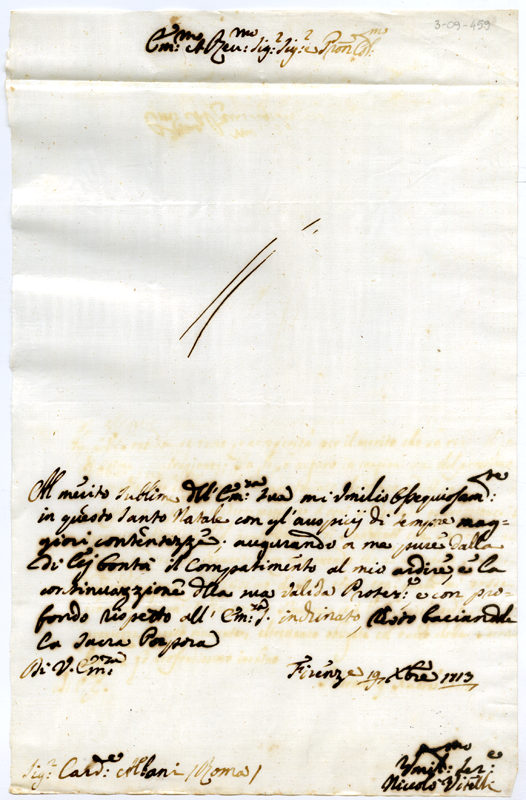 3-09-459
Em:mo e Rev:mo Sig:r Sig:r e Pron Col:mo
Al merito sublime dell' Em:za Sua mi umilio Ossequiosam:te
in questo Santo Natale con gl' auspicij di sempre mag=
giori contentezze; augurando a me pure dalla
di lei bontà il Compatimento al mio ardire, e la
continuazzione della sua valida Protez:e e con pro=
fondo rispetto all' Em:za S. inclinato, resto baciandole
la Sacra Porpora
Di V. Em:za Firenze 19 Xbre 1713
Sig:r Card:e Albani /Roma/
Umil:mo Ser:e
Niccolò Vitelli